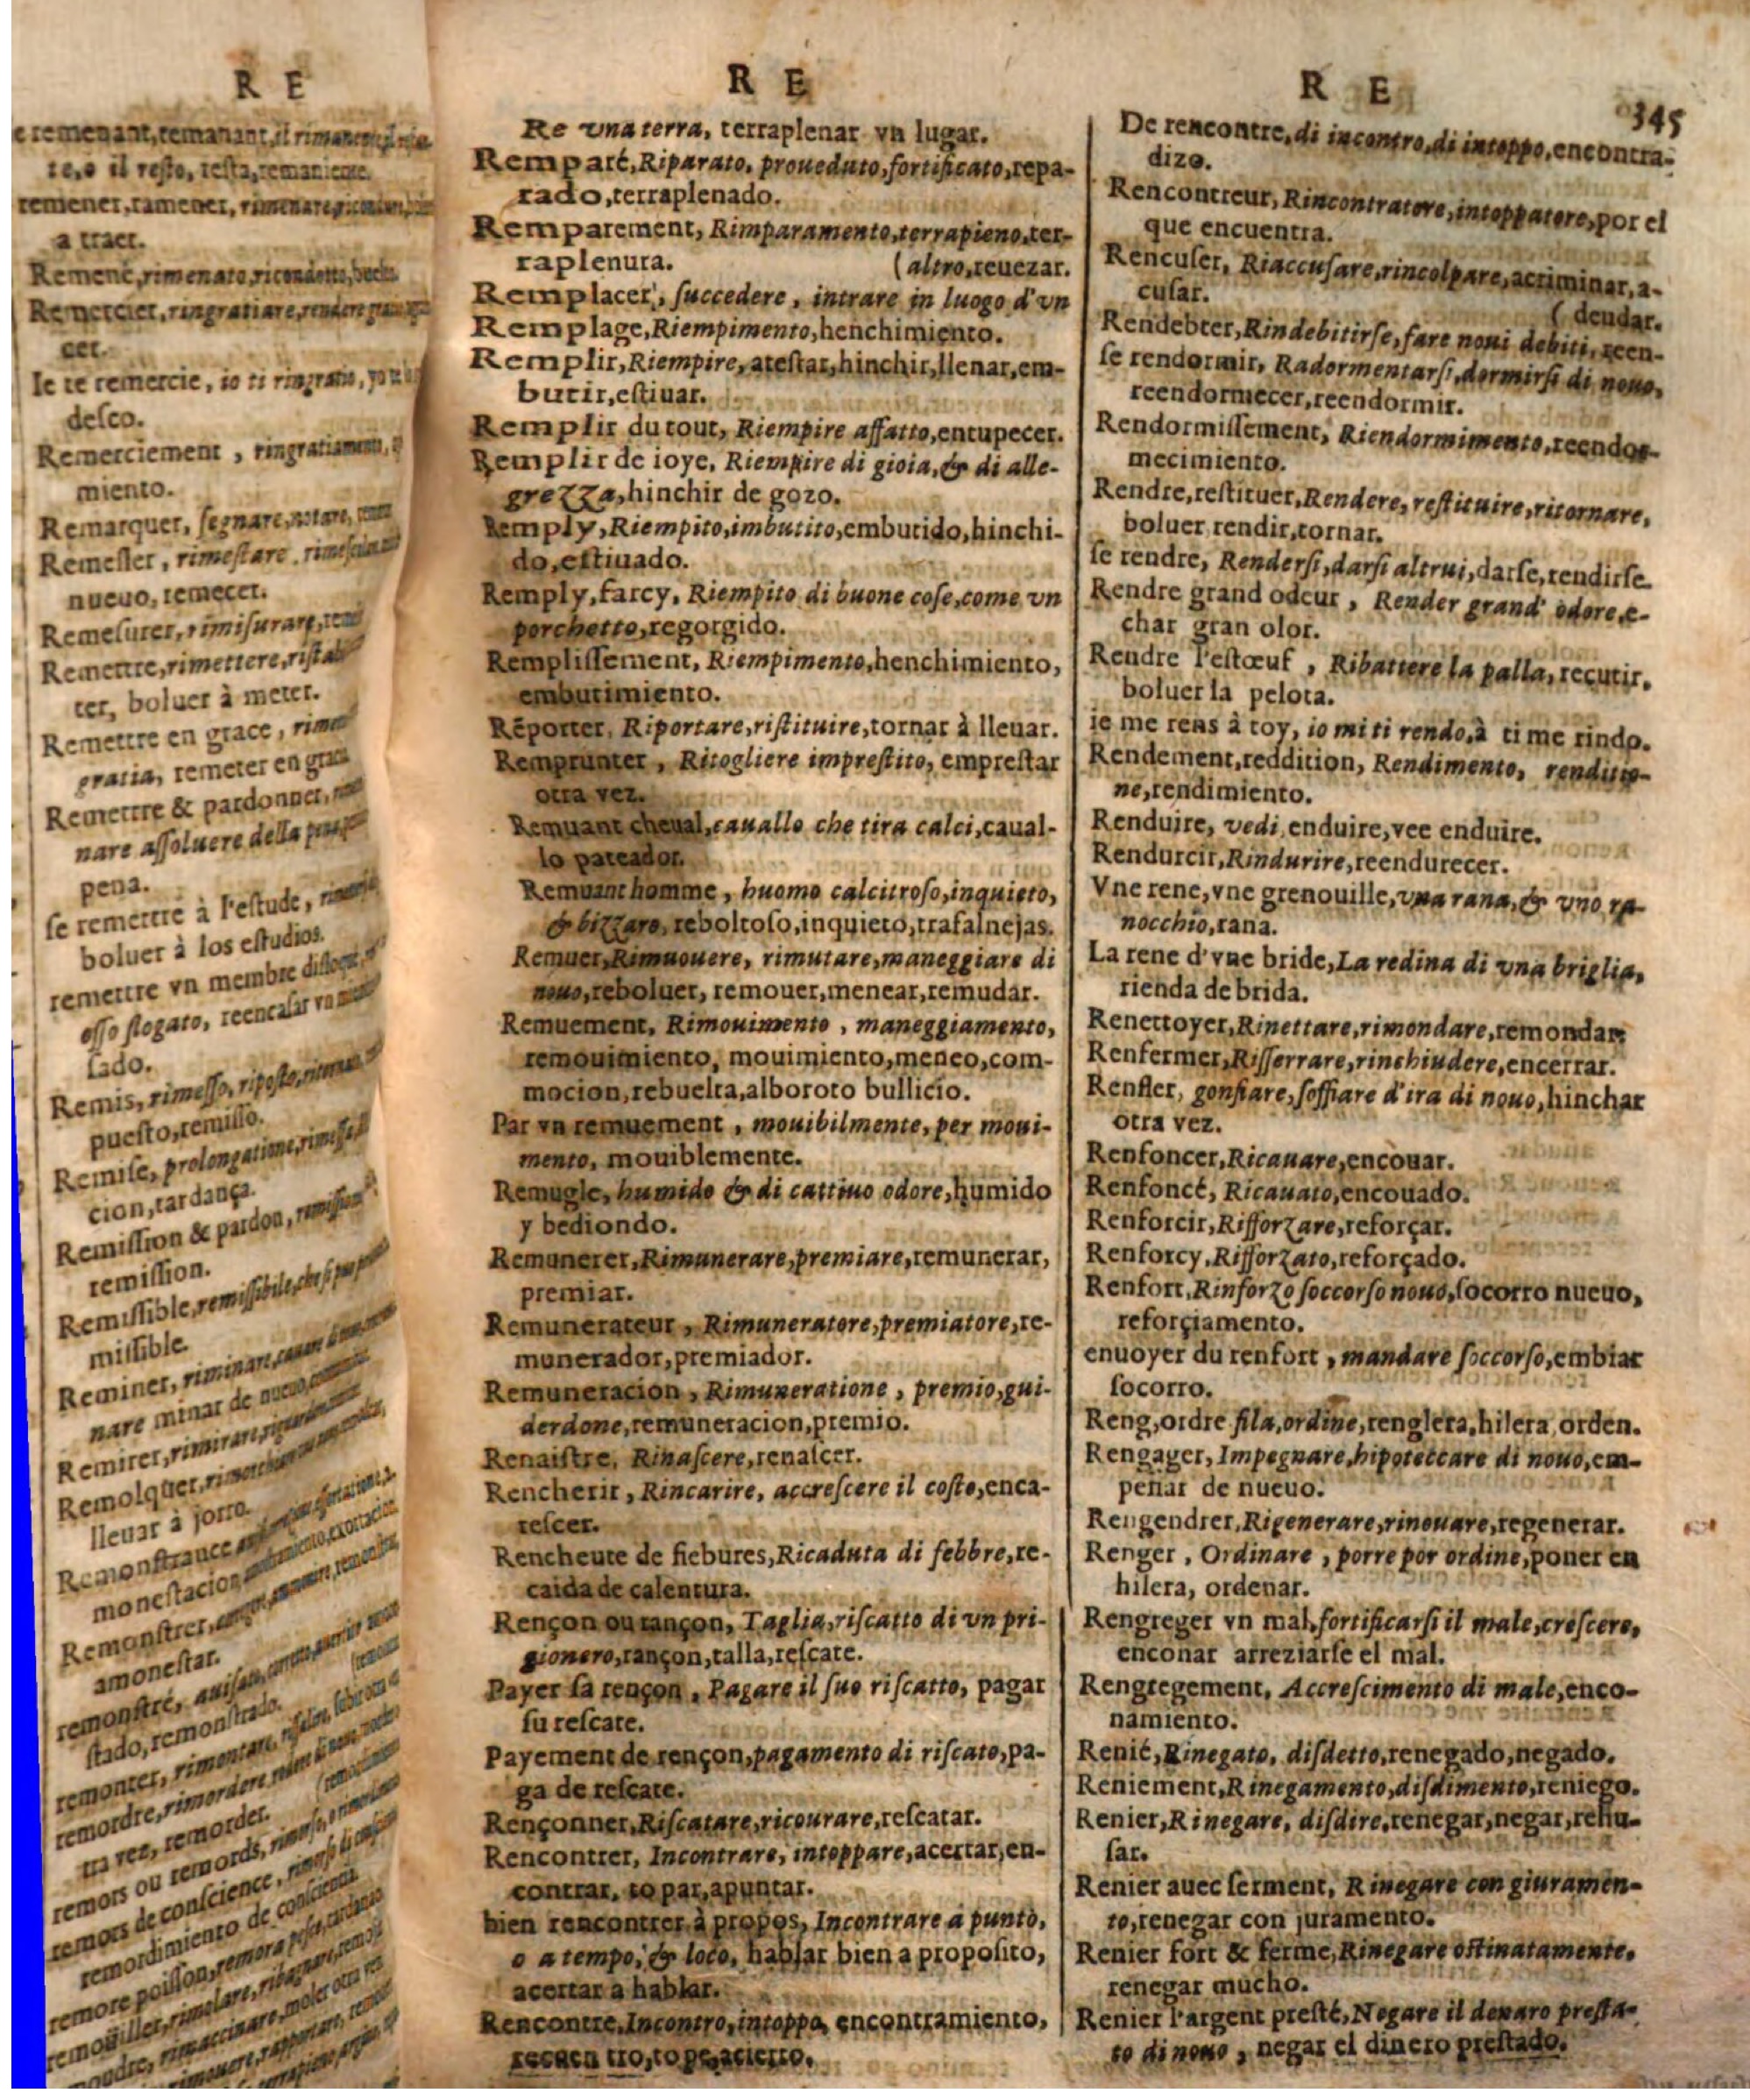 R E
te,o il resto, resta, remaniente.
remener, ramener,
a traer.
Remené, rimenato, ricondotto,
Remercier, ringratiare, rendere
cer.
Ie te remercie, io ti ringratio,
desco.
Remerciement, ringratiamento,
miento.
Remarquer, segnare, notare,
Remesler, rimestare,
nueuo, remecer.
Remesurer, rimisurare,
Remettre, rimettere,
ter, boluer à meter.
Remettre en grace,
gratia, remeter en
Remettre & pardonner,
nare assoluere della
pena.
se remettre à l'estude,
boluer à los estudios.
remettre vn membre
osso slogato, reencasar vn
sado.
Remis, rimesso, riposto,
puesto, remisso.
Remise, prolongatione,
cion, tardança.
Remission & pardon,
remission.
Remissible, remissibile, che si
missible.
Reminer, riminare,
nare minar de nueuo,
Remirer, rimirare,
Remolquer,
lleuar à jorro.
Remonstrance
monestacion,
Remonstrer,
amonestar.
remonstré,
stado, remonstrado.
remonter, rimontare,
remordre, rimordere
tra vez, remorder.
remors ou remords,
remors de conscience,
remordimiento de conscientia.
remore poisson, remora pesce,
R E
Re una terra, terraplenar vn lugar.
Remparé, Riparato, proueduto, fortificato, repa-
rado, terraplenado.
Remparement, Rimparamento, terrapieno, ter-
raplenura. (altro, reuezar.
Remplacer, succedere, intrare in luogo d'vn
Remplage, Riempimento, henchimiento.
Remplir, Riempire, atestar, hinchir, llenar, em-
butir, estiuar.
Remplir du tout, Riempire affatto, entupecer.
Remplir de ioye, Riempire di gioia, & di alle-
grezza, hinchir de gozo.
Remply, Riempito, imbutito, embutido, hinchi-
do, estiuado.
Remply, farcy, Riempito di buone cose, come vn
porchetto, regorgido.
Remplissement, Riempimento, henchimiento,
embutimiento.
Rēporter, Riportare, ristituire, tornar à lleuar.
Remprunter, Ritogliere imprestito, emprestar
otra vez.
Remuant cheual, cauallo che tira calci, caual-
lo pateador.
Remuant homme, huomo calcitroso, inquieto,
& bizzaro, reboltoso, inquieto, trafalnejas.
Remuer, Rimuouere, rimutare, maneggiare di
nouo, reboluer, remouer, menear, remudar.
Remuement, Rimouimento, maneggiamento,
remouimiento, mouimiento, meneo, com-
mocion, rebuelta, alboroto bullicio.
Par vn remuement, mouibilmente, per moui-
mento, mouiblemente.
Remugle, humido & di cattiuo odore, humido
y bediondo.
Remunerer, Rimunerare, premiare, remunerar,
premiar.
Remunerateur, Rimuneratore, premiatore, re-
munerador, premiador.
Remuneracion, Rimuneratione, premio, gui-
derdone, remuneracion, premio.
Renaistre, Rinascere, renascer.
Rencherir, Rincarire, accrescere il costo, enca-
rescer.
Rencheute de fiebures, Ricaduta di febbre, re-
caida de calentura.
Rençon ou rançon, Taglia, riscatto di vn pri-
gionero, rançon, talla, rescate.
Payer sa rençon, Pagare il suo riscatto, pagar
su rescate.
Payement de rençon, pagamento di riscato, pa-
ga de rescate.
Rençonner, Riscatare, ricourare, rescatar.
Rencontrer, Incontrare, intoppare, acertar, en-
contrar, to par, apuntar.
bien rencontrer à propos, Incontrare a punto,
o a tempo, & loco, hablar bien a proposito,
acertar a hablar.
Rencontre, Incontro, intoppo, encontramiento,
recuen tro, to pe, acierto.
R E
345
De rencontre, di incontro, di intoppo, encontra-
dizo.
Rencontreur, Rincontratore, intoppatore, por el
que encuentra.
Rencuser, Riaccusare, rincolpare, acriminar, a-
cusar. (deudar.
Rendebter, Rindebitirse, fare noui debiti, reen-
se rendormir, Radormentarsi, dormirsi di nouo,
reendormecer, reendormir.
Rendormissement, Riendormimento, reendor-
mecimiento.
Rendre, restituer, Rendere, restituire, ritornare,
boluer rendir, tornar.
se rendre, Rendersi, darsi altrui, darse, rendirse.
Rendre grand odeur, Render grand' odore, e-
char gran olor.
Rendre l'estœuf, Ribattere la palla, recutir,
boluer la pelota.
ie me rens à toy, io mi ti rendo, à ti me rindo.
Rendement, reddition, Rendimento, renditio-
ne, rendimiento.
Renduire, vedi enduire, vee enduire.
Rendurcir, Rindurire, reendurecer.
Vne rene, vne grenouille, una rana, & uno ra-
nocchio, rana.
La rene d'vne bride, La redina di una briglia,
rienda de brida.
Renettoyer, Rinettare, rimondare, remondar.
Renfermer, Risserrare, rinchiudere, encerrar.
Renfler, gonfiare, soffiare d'ira di nouo, hinchar
otra vez.
Renfoncer, Ricauare, encouar.
Renfoncé, Ricauato, encouado.
Renforcir, Rifforzare, reforçar.
Renforcy, Rifforzato, reforçado.
Renfort, Rinforzo soccorso nouo, socorro nueuo,
reforçiamento.
enuoyer du renfort, mandare soccorso, embiar
socorro.
Reng, ordre fila, ordine, renglera, hilera, orden.
Rengager, Impegnare, hipoteccare di nouo, em-
peñar de nueuo.
Rengendrer, Rigenerare, rinouare, regenerar.
Renger, Ordinare, porre por ordine, poner en
hilera, ordenar.
Rengreger vn mal, fortificarsi il male, crescere,
enconar arreziarse el mal.
Rengregement, Accrescimento di male, enco-
namiento.
Renié, Rinegato, disdetto, renegado, negado.
Reniement, Rinegamento, disdimento, reniego.
Renier, Rinegare, disdire, renegar, negar, rehu-
sar.
Renier auec serment, Rinegare con giuramen-
to, renegar con juramento.
Renier fort & ferme, Rinegare ostinatamente,
renegar mucho.
Renier l'argent presté, Negare il denaro presta-
to di nouo, negar el dinero prestado.